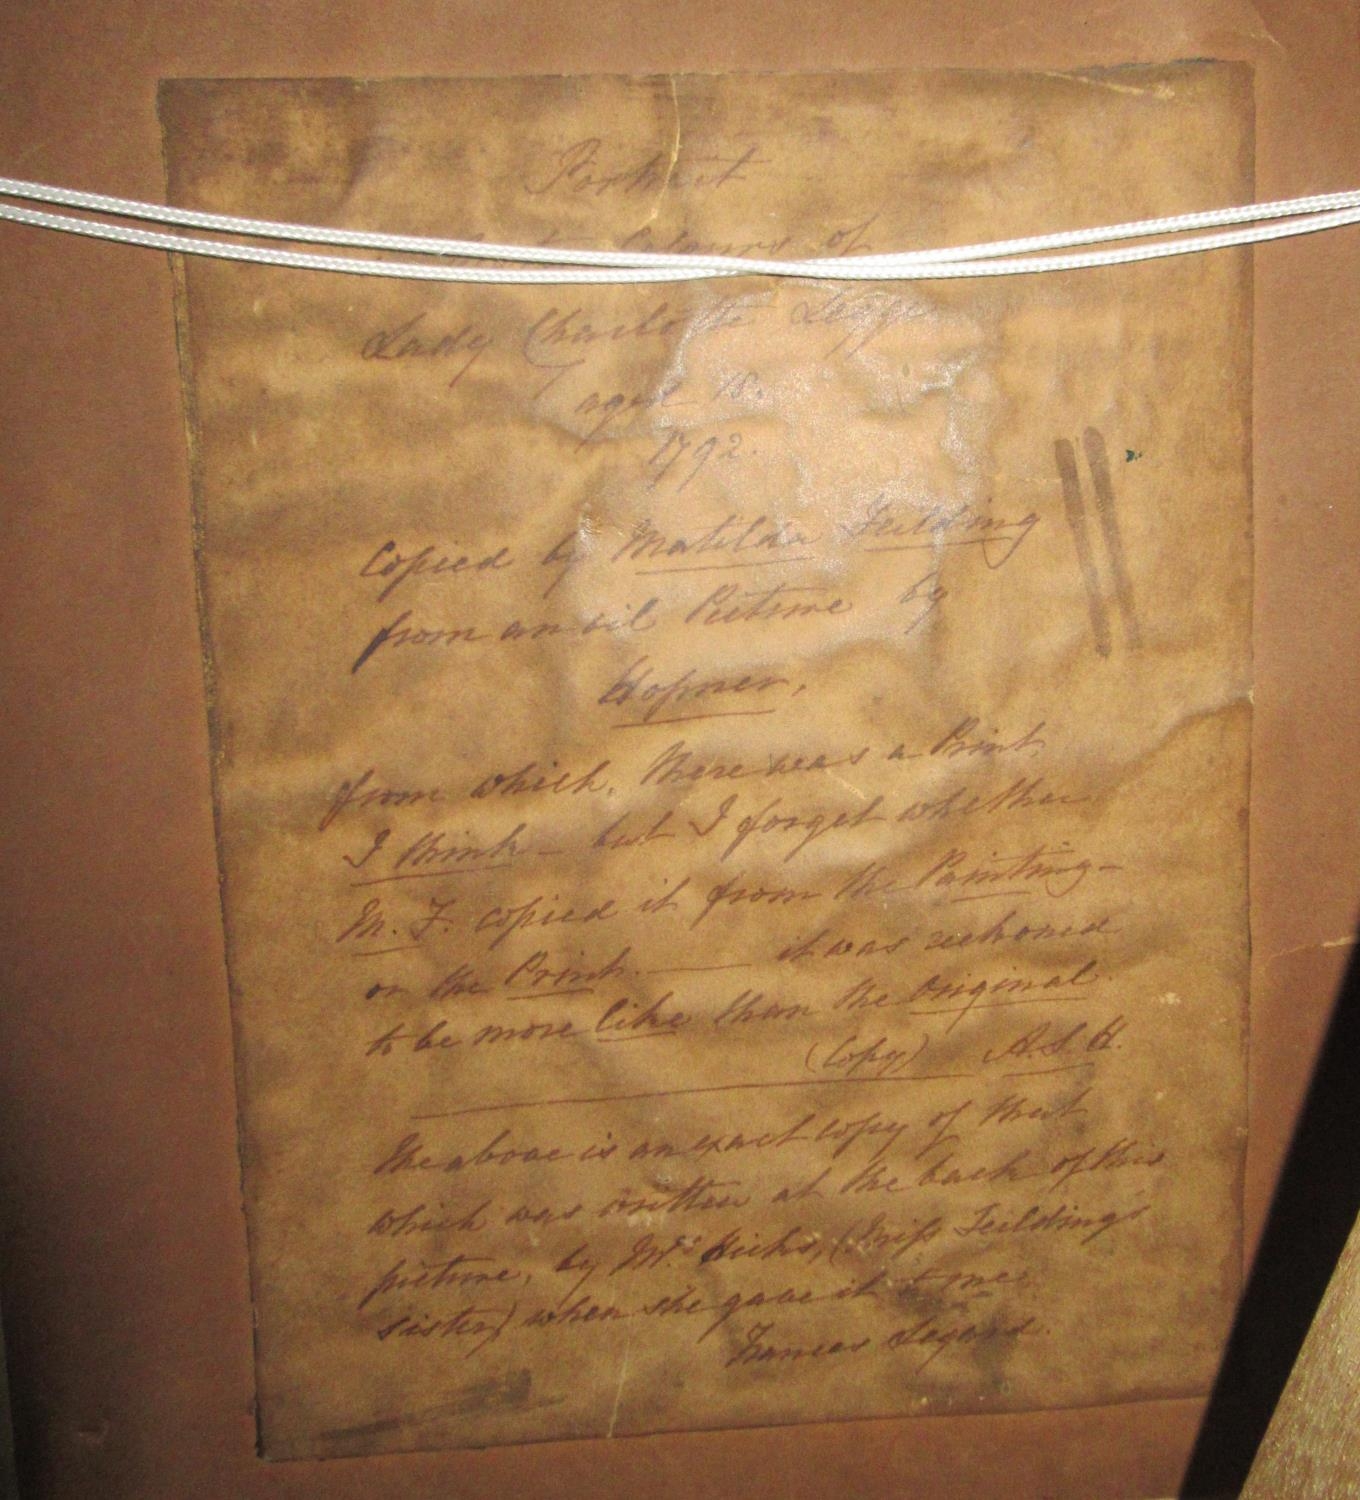 Portrait
Colours of
Lady Charlotte Legge
aged 18.
1792.
Copied by Matilda Feilding
from an oil Picture by
Hopner,
from which, there was a Print,
I think – but I forget whether
M. F. copied it from the Painting –
or the Print. —— it was reckoned
to be more like than the Original.
(Copy) A. S. H.
The above is an exact copy of that
which was written at the back of this
picture, by Mrs. Hicks, (Miss Feilding's
sister) when she gave it to me.
Frances Legard.